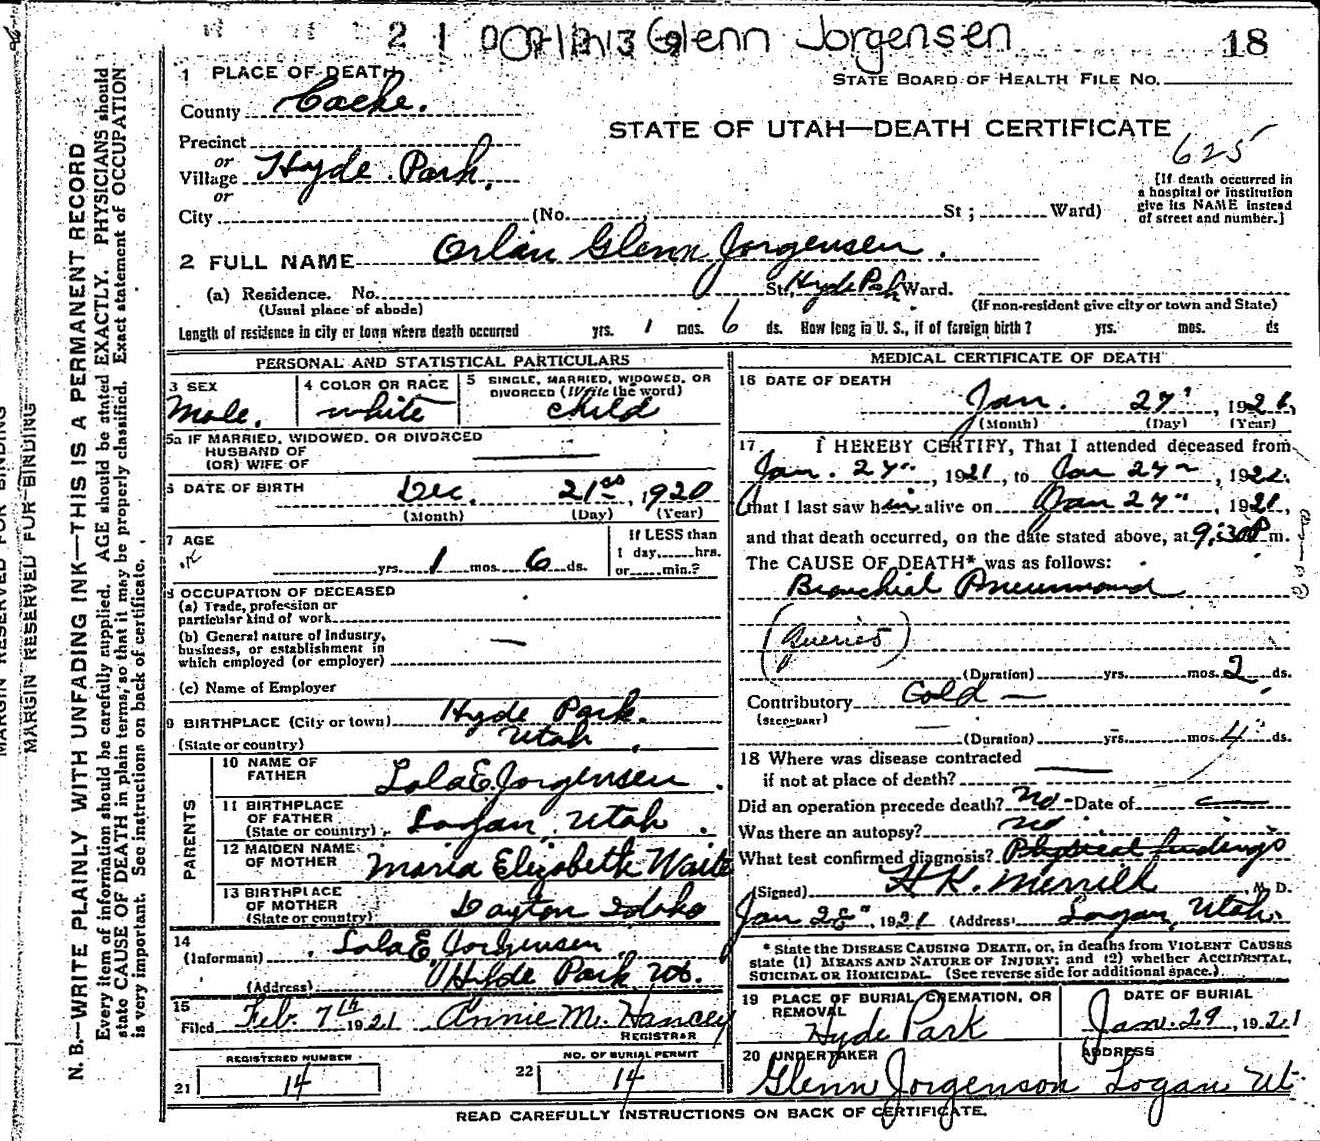 2 1 Glenn Jorgensen 18
1 PLACE OF DEATH
STATE BOARD OF HEALTH FILE NO.
County Cache.
STATE OF UTAH—DEATH CERTIFICATE
625
Precinct
or
Village Hyde Park.
or
City (No. St; Ward)
[If death occurred in
a hospital or institution
give its NAME instead
of street and number.]
2 FULL NAME Orlin Glenn Jorgensen.
(a) Residence. No. St., Hyde Park Ward.
(Usual place of abode) (If non-resident give city or town and State)
Length of residence in city or town where death occurred yrs. 1 mos. 6 ds. How long in U. S., if of foreign birth? yrs. mos. ds
PERSONAL AND STATISTICAL PARTICULARS
3 SEX
Male.
4 COLOR OR RACE
white
5 SINGLE, MARRIED, WIDOWED, OR
DIVORCED (Write the word)
child
5a IF MARRIED, WIDOWED, OR DIVORCED
HUSBAND OF
(OR) WIFE OF
6 DATE OF BIRTH Dec. 21st, 1920
(Month) (Day) (Year)
7 AGE
yrs. 1 mos. 6 ds.
If LESS than
1 day, hrs.
or min.?
8 OCCUPATION OF DECEASED
(a) Trade, profession or
particular kind of work
(b) General nature of Industry,
business, or establishment in
which employed (or employer)
(c) Name of Employer
9 BIRTHPLACE (City or town) Hyde Park.
(State or country) Utah.
PARENTS
10 NAME OF
FATHER Lola E. Jorgensen.
11 BIRTHPLACE
OF FATHER
(State or country) Logan, Utah.
12 MAIDEN NAME
OF MOTHER Maria Elizabeth Waite
13 BIRTHPLACE
OF MOTHER
(State or country) Dayton Idaho
14
(Informant) Lola E Jorgensen
(Address) Hyde Park Ut.
15
Filed Feb. 7th 1921 Annie M. Hancey
REGISTRAR
REGISTERED NUMBER
21 14
NO. OF BURIAL PERMIT
22 14
MEDICAL CERTIFICATE OF DEATH
16 DATE OF DEATH
Jan. 27, 1921,
(Month) (Day) (Year)
17 I HEREBY CERTIFY, That I attended deceased from
Jan. 27, 1921, to Jan 27, 1921.
that I last saw him alive on Jan 27, 1921,
and that death occurred, on the date stated above, at 9:30 P m.
The CAUSE OF DEATH* was as follows:
Bronchial Pneumonia
(Queries)
(Duration) yrs. mos. 2 ds.
Contributory Cold
(SECONDARY)
(Duration) yrs. mos. 4 ds.
18 Where was disease contracted
if not at place of death?
Did an operation precede death? No Date of
Was there an autopsy? no
What test confirmed diagnosis? Physical findings
(Signed) H. K. Merrill M. D.
Jan 28, 1921 (Address) Logan, Utah.
* State the DISEASE CAUSING DEATH, or, in deaths from VIOLENT CAUSES
state (1) MEANS AND NATURE OF INJURY; and (2) whether ACCIDENTAL,
SUICIDAL OR HOMICIDAL. (See reverse side for additional space.)
19 PLACE OF BURIAL, CREMATION, OR
REMOVAL
Hyde Park
DATE OF BURIAL
Jan. 29, 1921
20 UNDERTAKER
Glenn Jorgenson
ADDRESS
Logan Ut.
READ CAREFULLY INSTRUCTIONS ON BACK OF CERTIFICATE.
MARGIN RESERVED FOR BINDING
MARGIN RESERVED FOR BINDING
N. B.—WRITE PLAINLY WITH UNFADING INK—THIS IS A PERMANENT RECORD
Every item of information should be carefully supplied. AGE should be stated EXACTLY. PHYSICIANS should
state CAUSE OF DEATH in plain terms, so that it may be properly classified. Exact statement of OCCUPATION
is very important. See instructions on back of certificate.